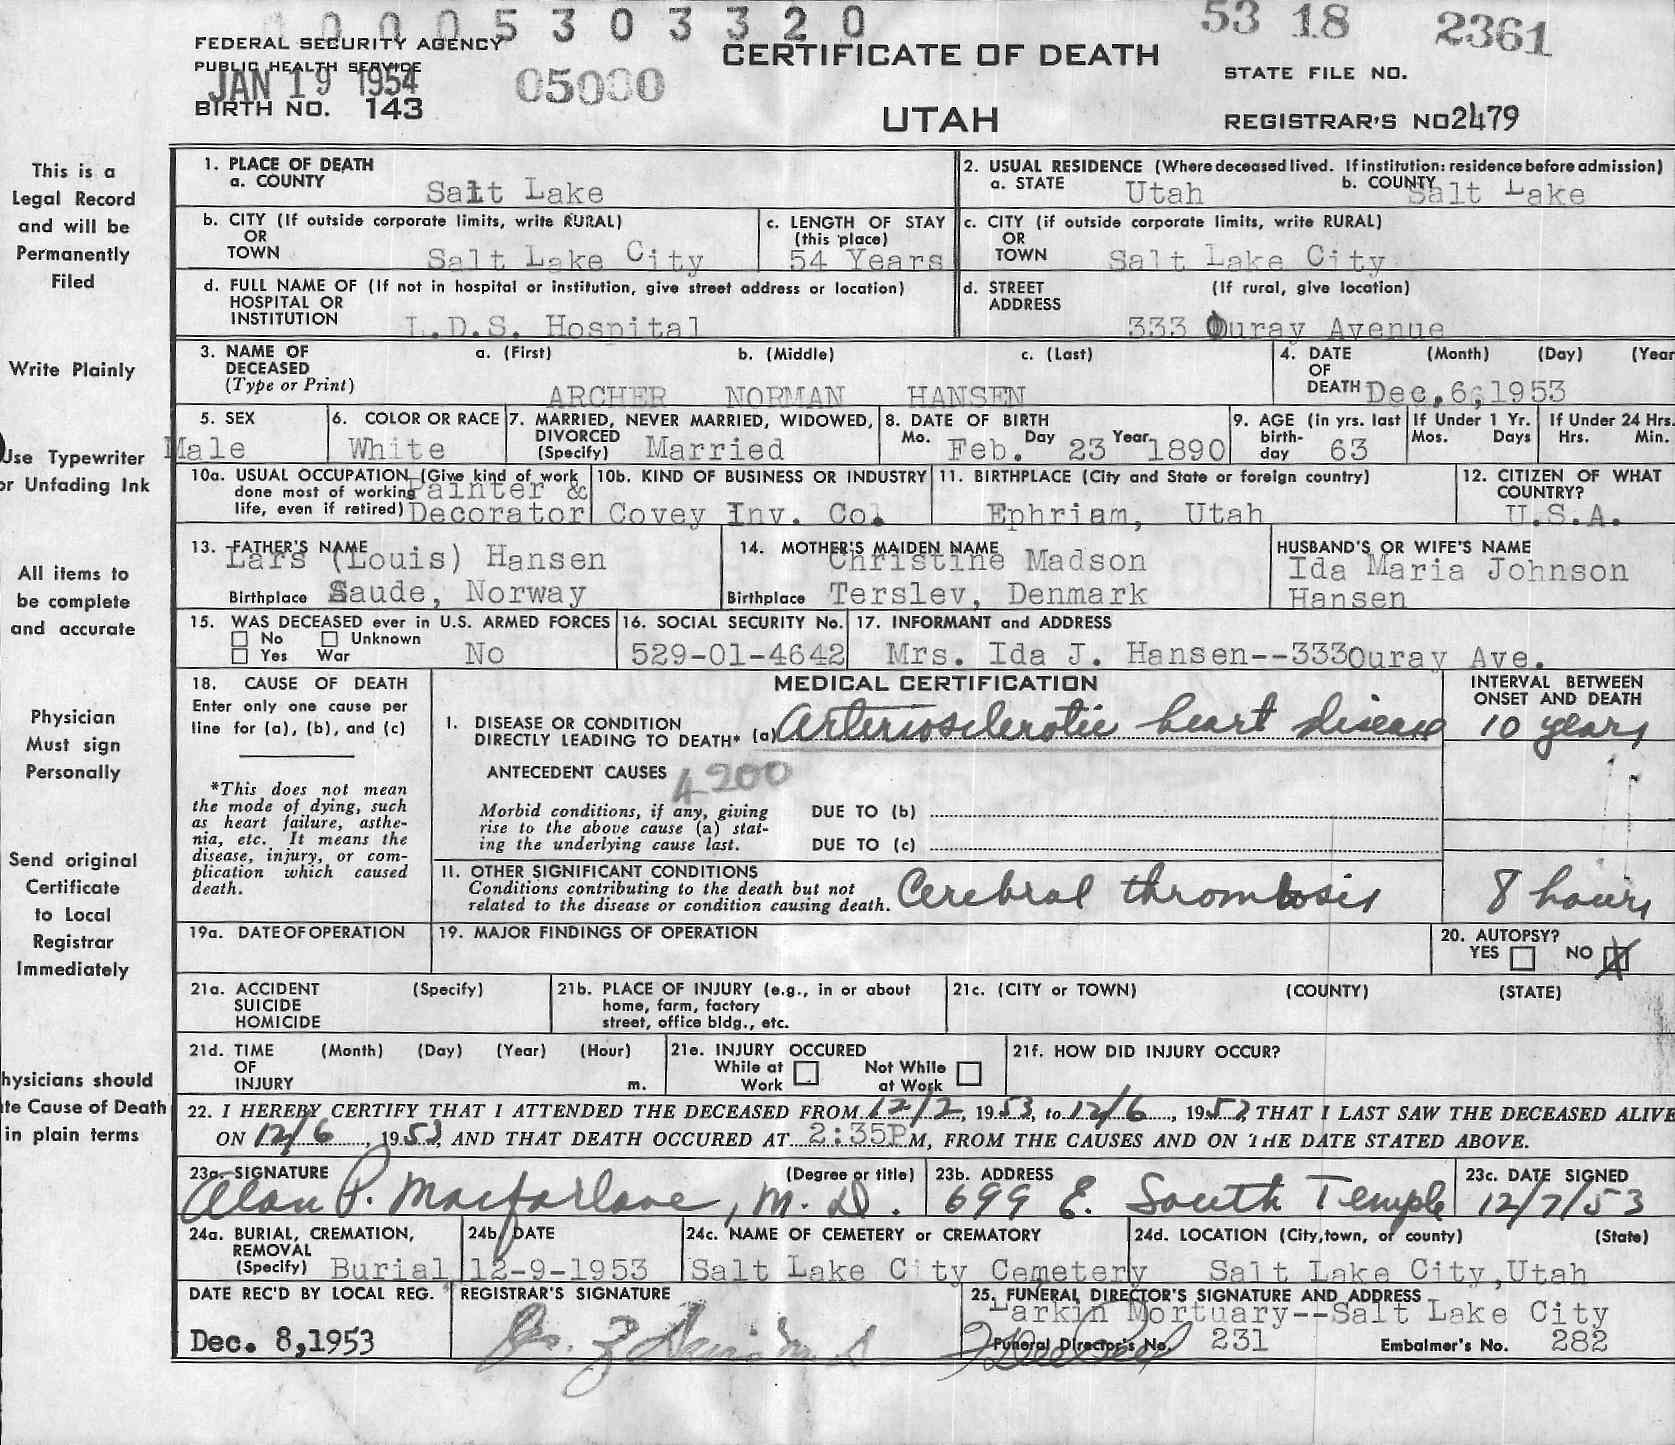 10005303320
53 18 2361
FEDERAL SECURITY AGENCY
PUBLIC HEALTH SERVICE
JAN 19 1954
05000
CERTIFICATE OF DEATH
STATE FILE NO.
BIRTH NO. 143
UTAH
REGISTRAR'S NO 2479
This is a
Legal Record
and will be
Permanently
Filed
Write Plainly
Use Typewriter
or Unfading Ink
All items to
be complete
and accurate
Physician
Must sign
Personally
Send original
Certificate
to Local
Registrar
Immediately
hysicians should
te Cause of Death
in plain terms
1. PLACE OF DEATH
a. COUNTY Salt Lake
2. USUAL RESIDENCE (Where deceased lived. If institution: residence before admission)
a. STATE Utah b. COUNTY Salt Lake
b. CITY (If outside corporate limits, write RURAL)
OR
TOWN Salt Lake City
c. LENGTH OF STAY
(this place)
54 Years
c. CITY (if outside corporate limits, write RURAL)
OR
TOWN Salt Lake City
d. FULL NAME OF (If not in hospital or institution, give street address or location)
HOSPITAL OR
INSTITUTION L.D.S. Hospital
d. STREET (If rural, give location)
ADDRESS
333 Ouray Avenue
3. NAME OF DECEASED a. (First) b. (Middle) c. (Last)
(Type or Print) ARCHER NORMAN HANSEN
4. DATE (Month) (Day) (Year
OF
DEATH Dec. 6, 1953
5. SEX
Male
6. COLOR OR RACE
White
7. MARRIED, NEVER MARRIED, WIDOWED,
DIVORCED
(Specify) Married
8. DATE OF BIRTH
Mo. Feb. Day 23 Year 1890
9. AGE (in yrs. last
birth-
day 63
If Under 1 Yr.
Mos. Days
If Under 24 Hrs.
Hrs. Min.
10a. USUAL OCCUPATION (Give kind of work
done most of working Painter &
life, even if retired) Decorator
10b. KIND OF BUSINESS OR INDUSTRY
Covey Inv. Co.
11. BIRTHPLACE (City and State or foreign country)
Ephriam, Utah
12. CITIZEN OF WHAT
COUNTRY?
U.S.A.
13. FATHER'S NAME
Lars (Louis) Hansen
Birthplace Saude, Norway
14. MOTHER'S MAIDEN NAME
Christine Madson
Birthplace Terslev, Denmark
HUSBAND'S OR WIFE'S NAME
Ida Maria Johnson
Hansen
15. WAS DECEASED ever in U.S. ARMED FORCES
No Unknown
Yes War No
16. SOCIAL SECURITY No.
529-01-4642
17. INFORMANT and ADDRESS
Mrs. Ida J. Hansen--333Ouray Ave.
18. CAUSE OF DEATH
Enter only one cause per
line for (a), (b), and (c)
*This does not mean
the mode of dying, such
as heart failure, asthe-
nia, etc. It means the
disease, injury, or com-
plication which caused
death.
MEDICAL CERTIFICATION
INTERVAL BETWEEN
ONSET AND DEATH
I. DISEASE OR CONDITION
DIRECTLY LEADING TO DEATH* (a) Arteriosclerotic heart disease 10 years
ANTECEDENT CAUSES 4200
Morbid conditions, if any, giving
rise to the above cause (a) stat-
ing the underlying cause last.
DUE TO (b)
DUE TO (c)
II. OTHER SIGNIFICANT CONDITIONS
Conditions contributing to the death but not
related to the disease or condition causing death. Cerebral thrombosis 8 hours
19a. DATE OF OPERATION
19. MAJOR FINDINGS OF OPERATION
20. AUTOPSY?
YES NO X
21a. ACCIDENT (Specify)
SUICIDE
HOMICIDE
21b. PLACE OF INJURY (e.g., in or about
home, farm, factory
street, office bldg., etc.
21c. (CITY or TOWN) (COUNTY) (STATE)
21d. TIME (Month) (Day) (Year) (Hour)
OF
INJURY m.
21e. INJURY OCCURED
While at Work
Not While at Work
21f. HOW DID INJURY OCCUR?
22. I HEREBY CERTIFY THAT I ATTENDED THE DECEASED FROM 12/2, 1953, to 12/6, 1953, THAT I LAST SAW THE DECEASED ALIVE
ON 12/6, 1953, AND THAT DEATH OCCURED AT 2:35P M, FROM THE CAUSES AND ON THE DATE STATED ABOVE.
23a. SIGNATURE (Degree or title)
Alan P. Macfarlane, M.D.
23b. ADDRESS
699 E. South Temple
23c. DATE SIGNED
12/7/53
24a. BURIAL, CREMATION,
REMOVAL
(Specify) Burial
24b. DATE
12-9-1953
24c. NAME OF CEMETERY or CREMATORY
Salt Lake City Cemetery
24d. LOCATION (City, town, or county) (State)
Salt Lake City, Utah
DATE REC'D BY LOCAL REG.
Dec. 8, 1953
REGISTRAR'S SIGNATURE
25. FUNERAL DIRECTOR'S SIGNATURE AND ADDRESS
Larkin Mortuary--Salt Lake City
Funeral Director's No. 231 Embalmer's No. 282